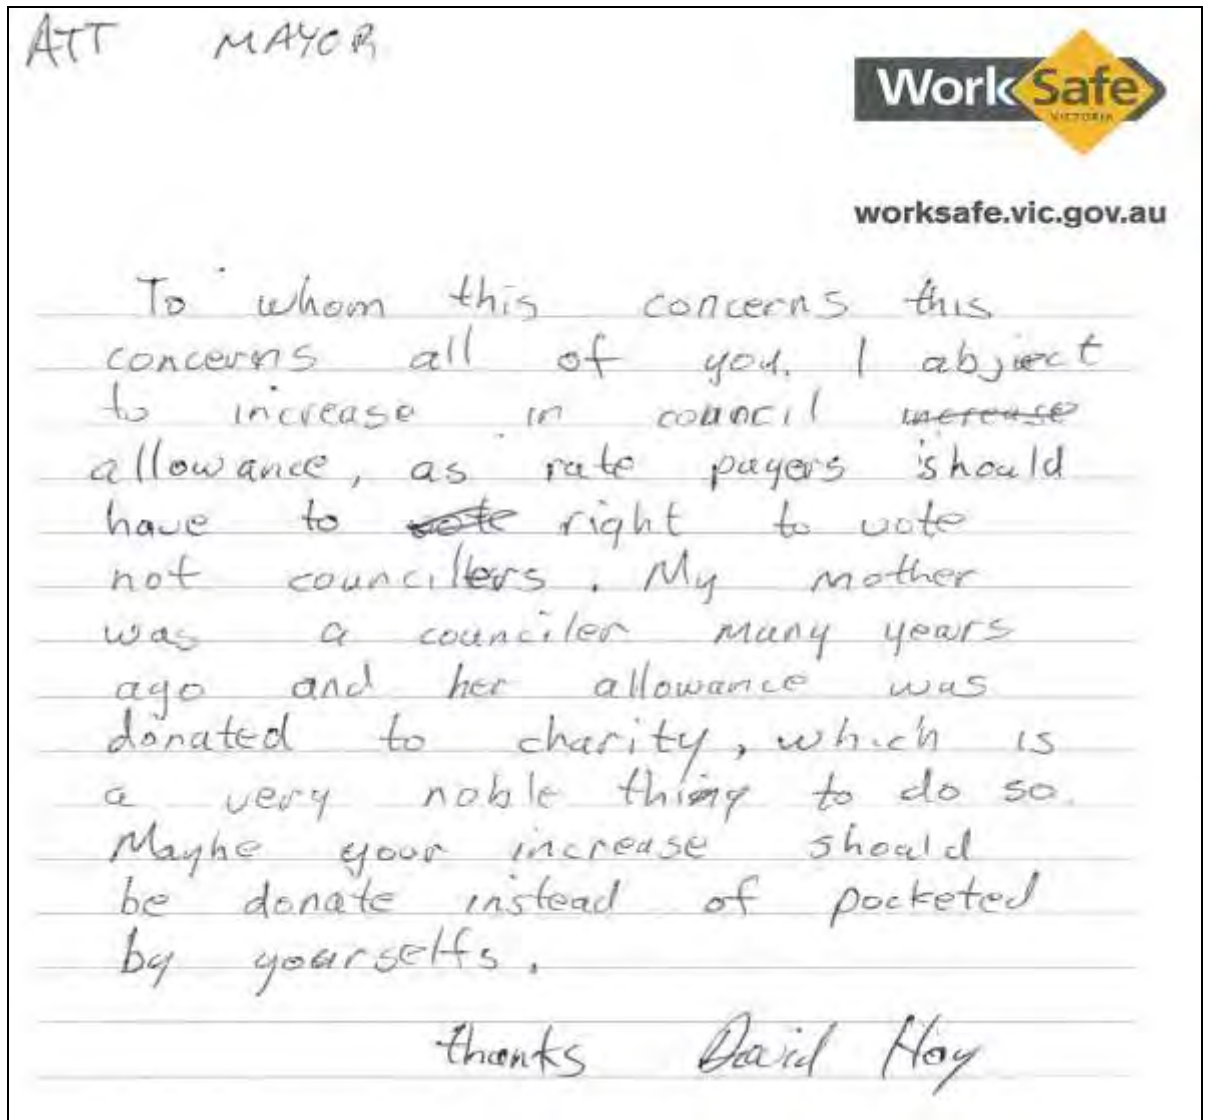 ATT MAYOR
WorkSafe
VICTORIA
worksafe.vic.gov.au
To whom this concerns this
concerns all of you. I abject
to increase in council increase
allowance, as rate payers should
have to vote right to vote
not councillers. My mother
was a counciler many years
ago and her allowance was
donated to charity, which is
a very noble thing to do so.
Maybe your increase should
be donate instead of pocketed
by yourselfs.
thanks David Hoy